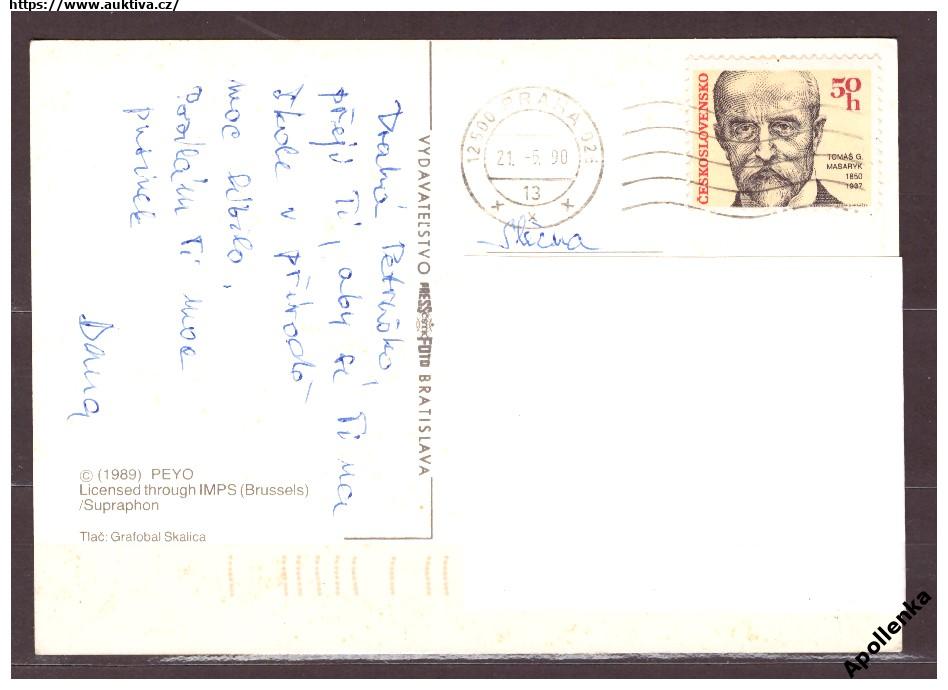 https://www.auktiva.cz/
Drahá Petruško,
přeji Ti, aby se Ti na
škole v přírodě
moc líbilo,
Posílám Ti moc
pusinek
Dana
VYDAVATEĽSTVO PRESSFOTO BRATISLAVA
© (1989) PEYO
Licensed through IMPS (Brussels)
/Supraphon
Tlač: Grafobal Skalica
12500 PRAHA 025
21.-6.90
13
ČESKOSLOVENSKO
50
h
TOMÁŠ G.
MASARYK
1850
1937
Slečna
Apollenka